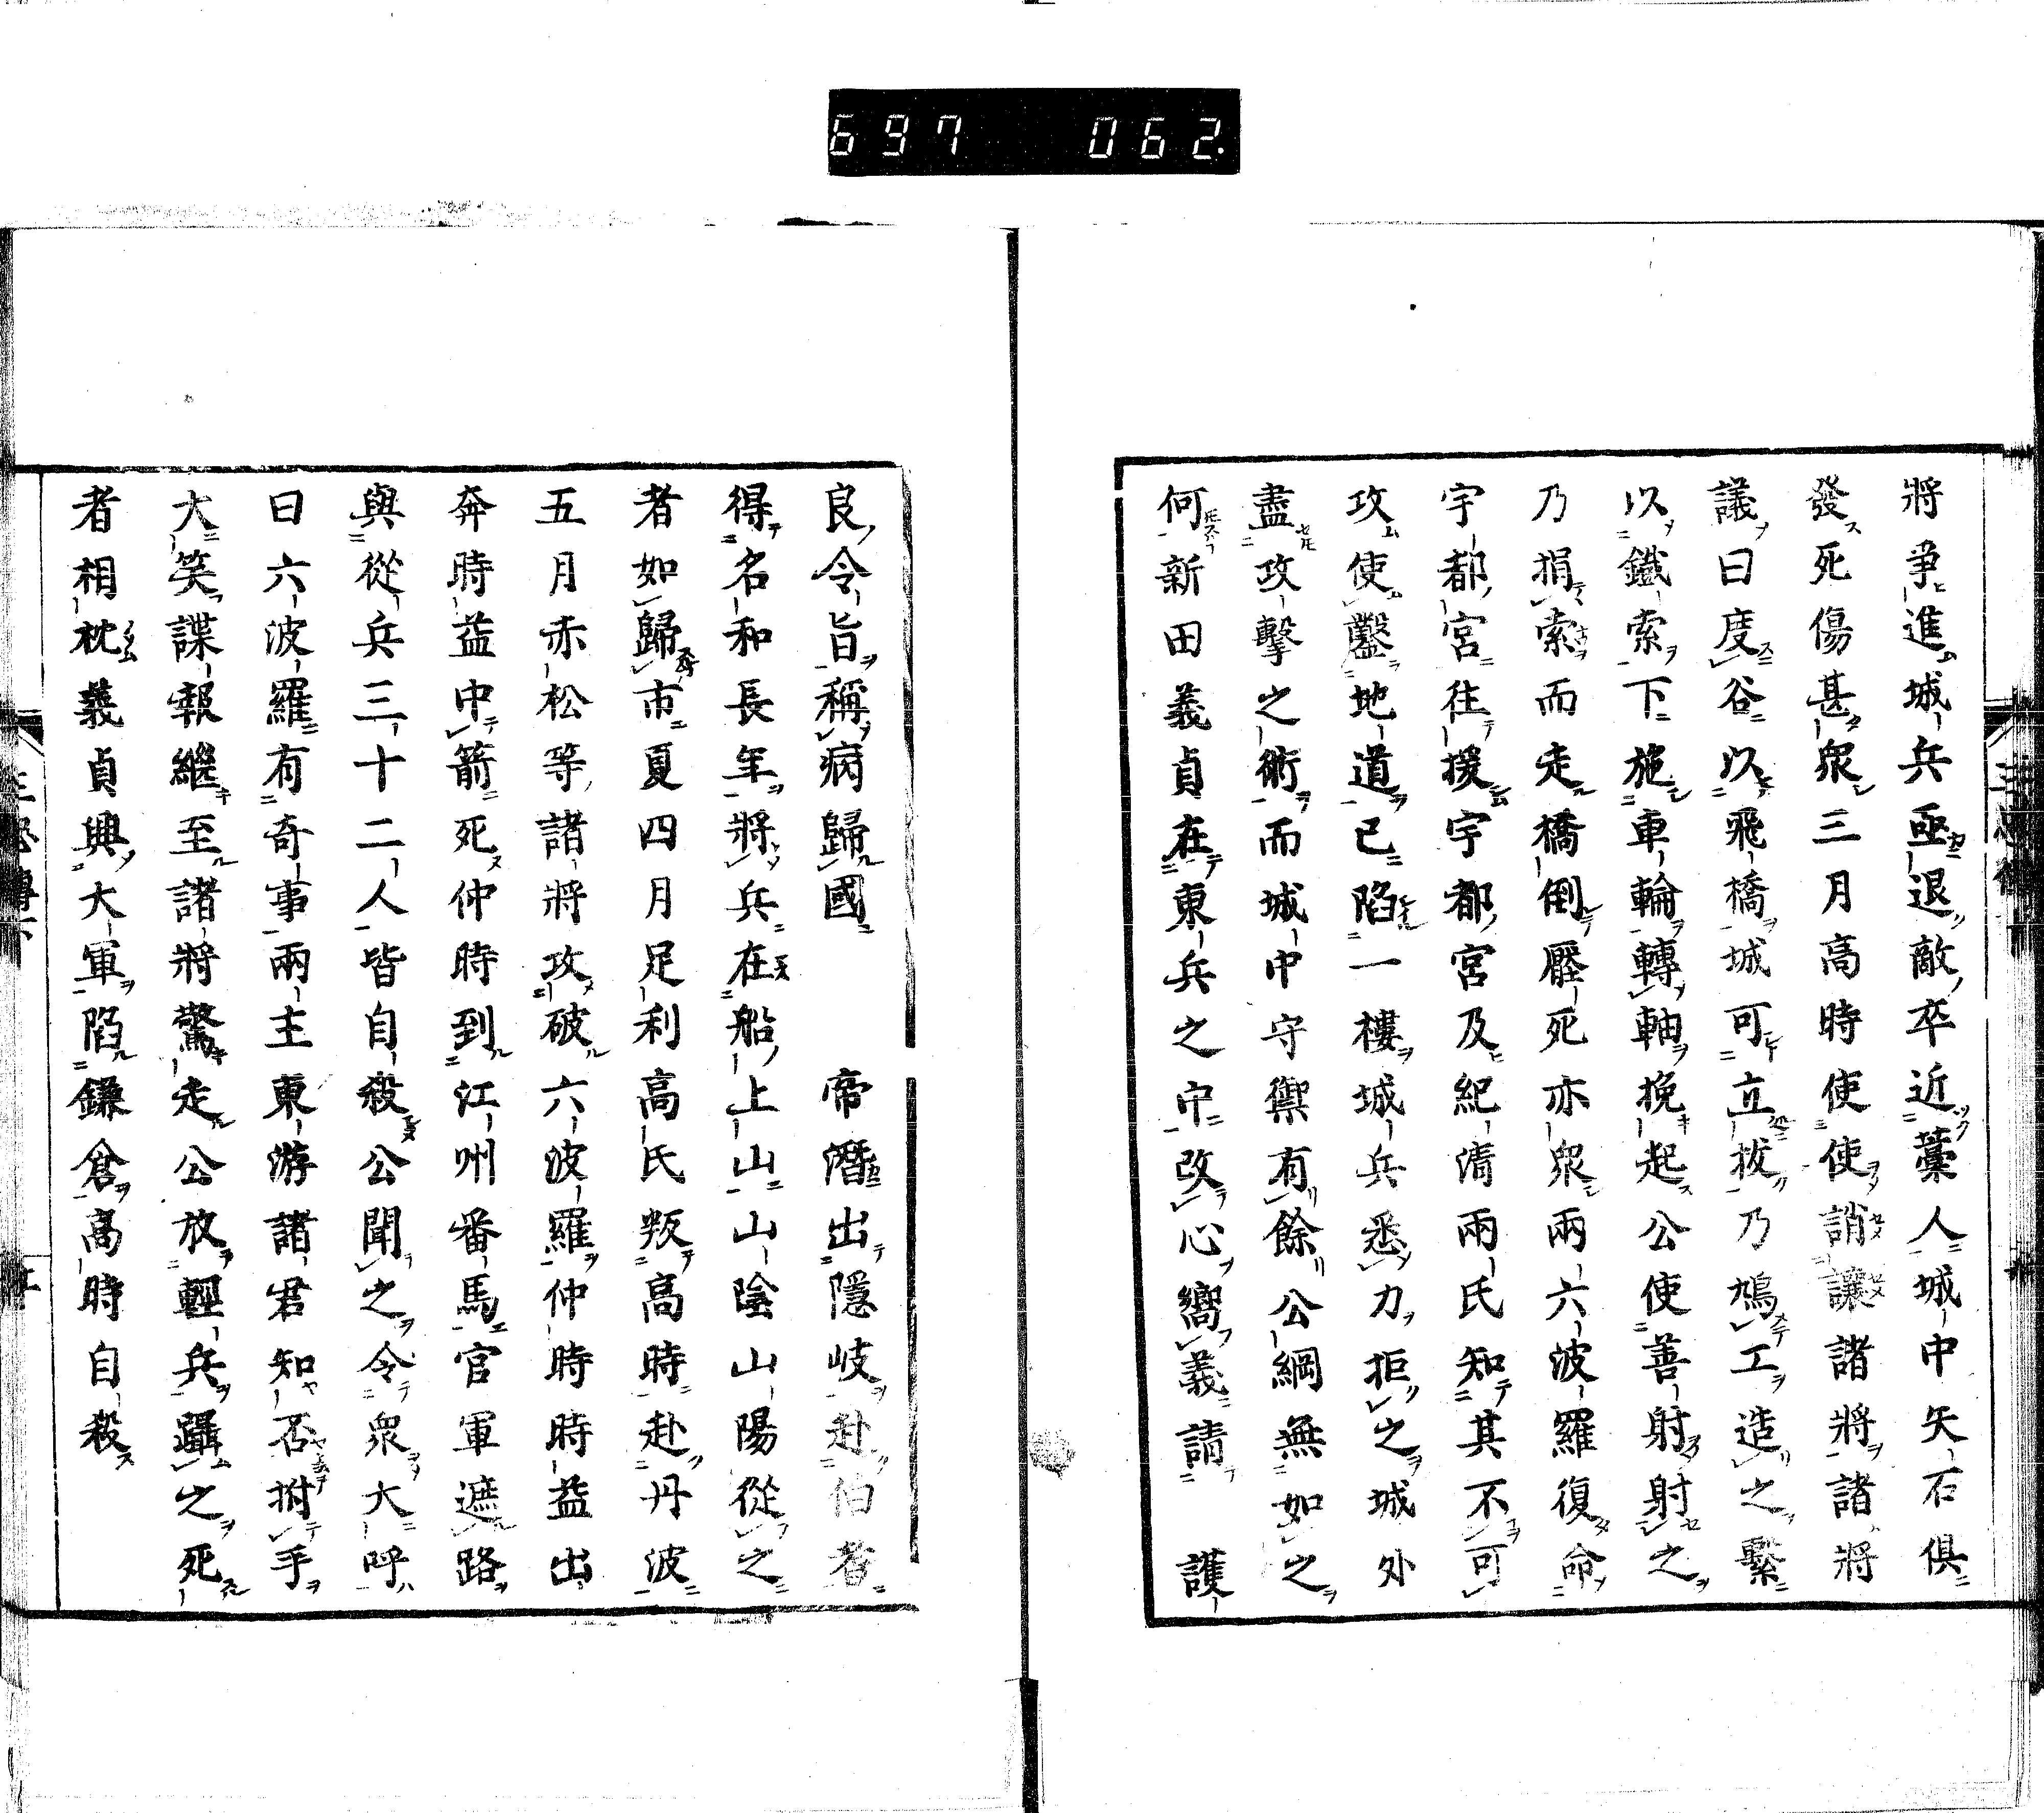 697 062.
將爭進城兵亟退敵卒近藁人城中矢石俱
發死傷甚衆三月高時使使誚讓諸將諸將
議曰度谷以飛橋城可立拔乃鳩工造之繫
以鐵索下施車輪轉軸挽起公使善射射之
乃捐索而走橋倒壓死亦衆兩六波羅復命
宇都宮往援宇都宮及紀清兩氏知其不可
攻使鑿地道已陷一樓城兵悉力拒之城外
盡攻擊之術而城中守禦有餘公綱無如之
何新田義貞在東兵之中改心嚮義請 護
良令旨稱病歸國 帝潛出隱岐赴伯耆
得名和長年將兵在船上山山陰山陽從之
者如歸市夏四月足利高氏叛高時赴丹波
五月赤松等諸將攻破六波羅仲時時益出
奔時益中箭死仲時到江州番馬官軍遮路
與從兵三十二人皆自殺公聞之令衆大呼
曰六波羅有奇事兩主東游諸君知否拊手
大笑諜報繼至諸將驚走公放輕兵躡之死
者相枕義貞興大軍陷鎌倉高時自殺